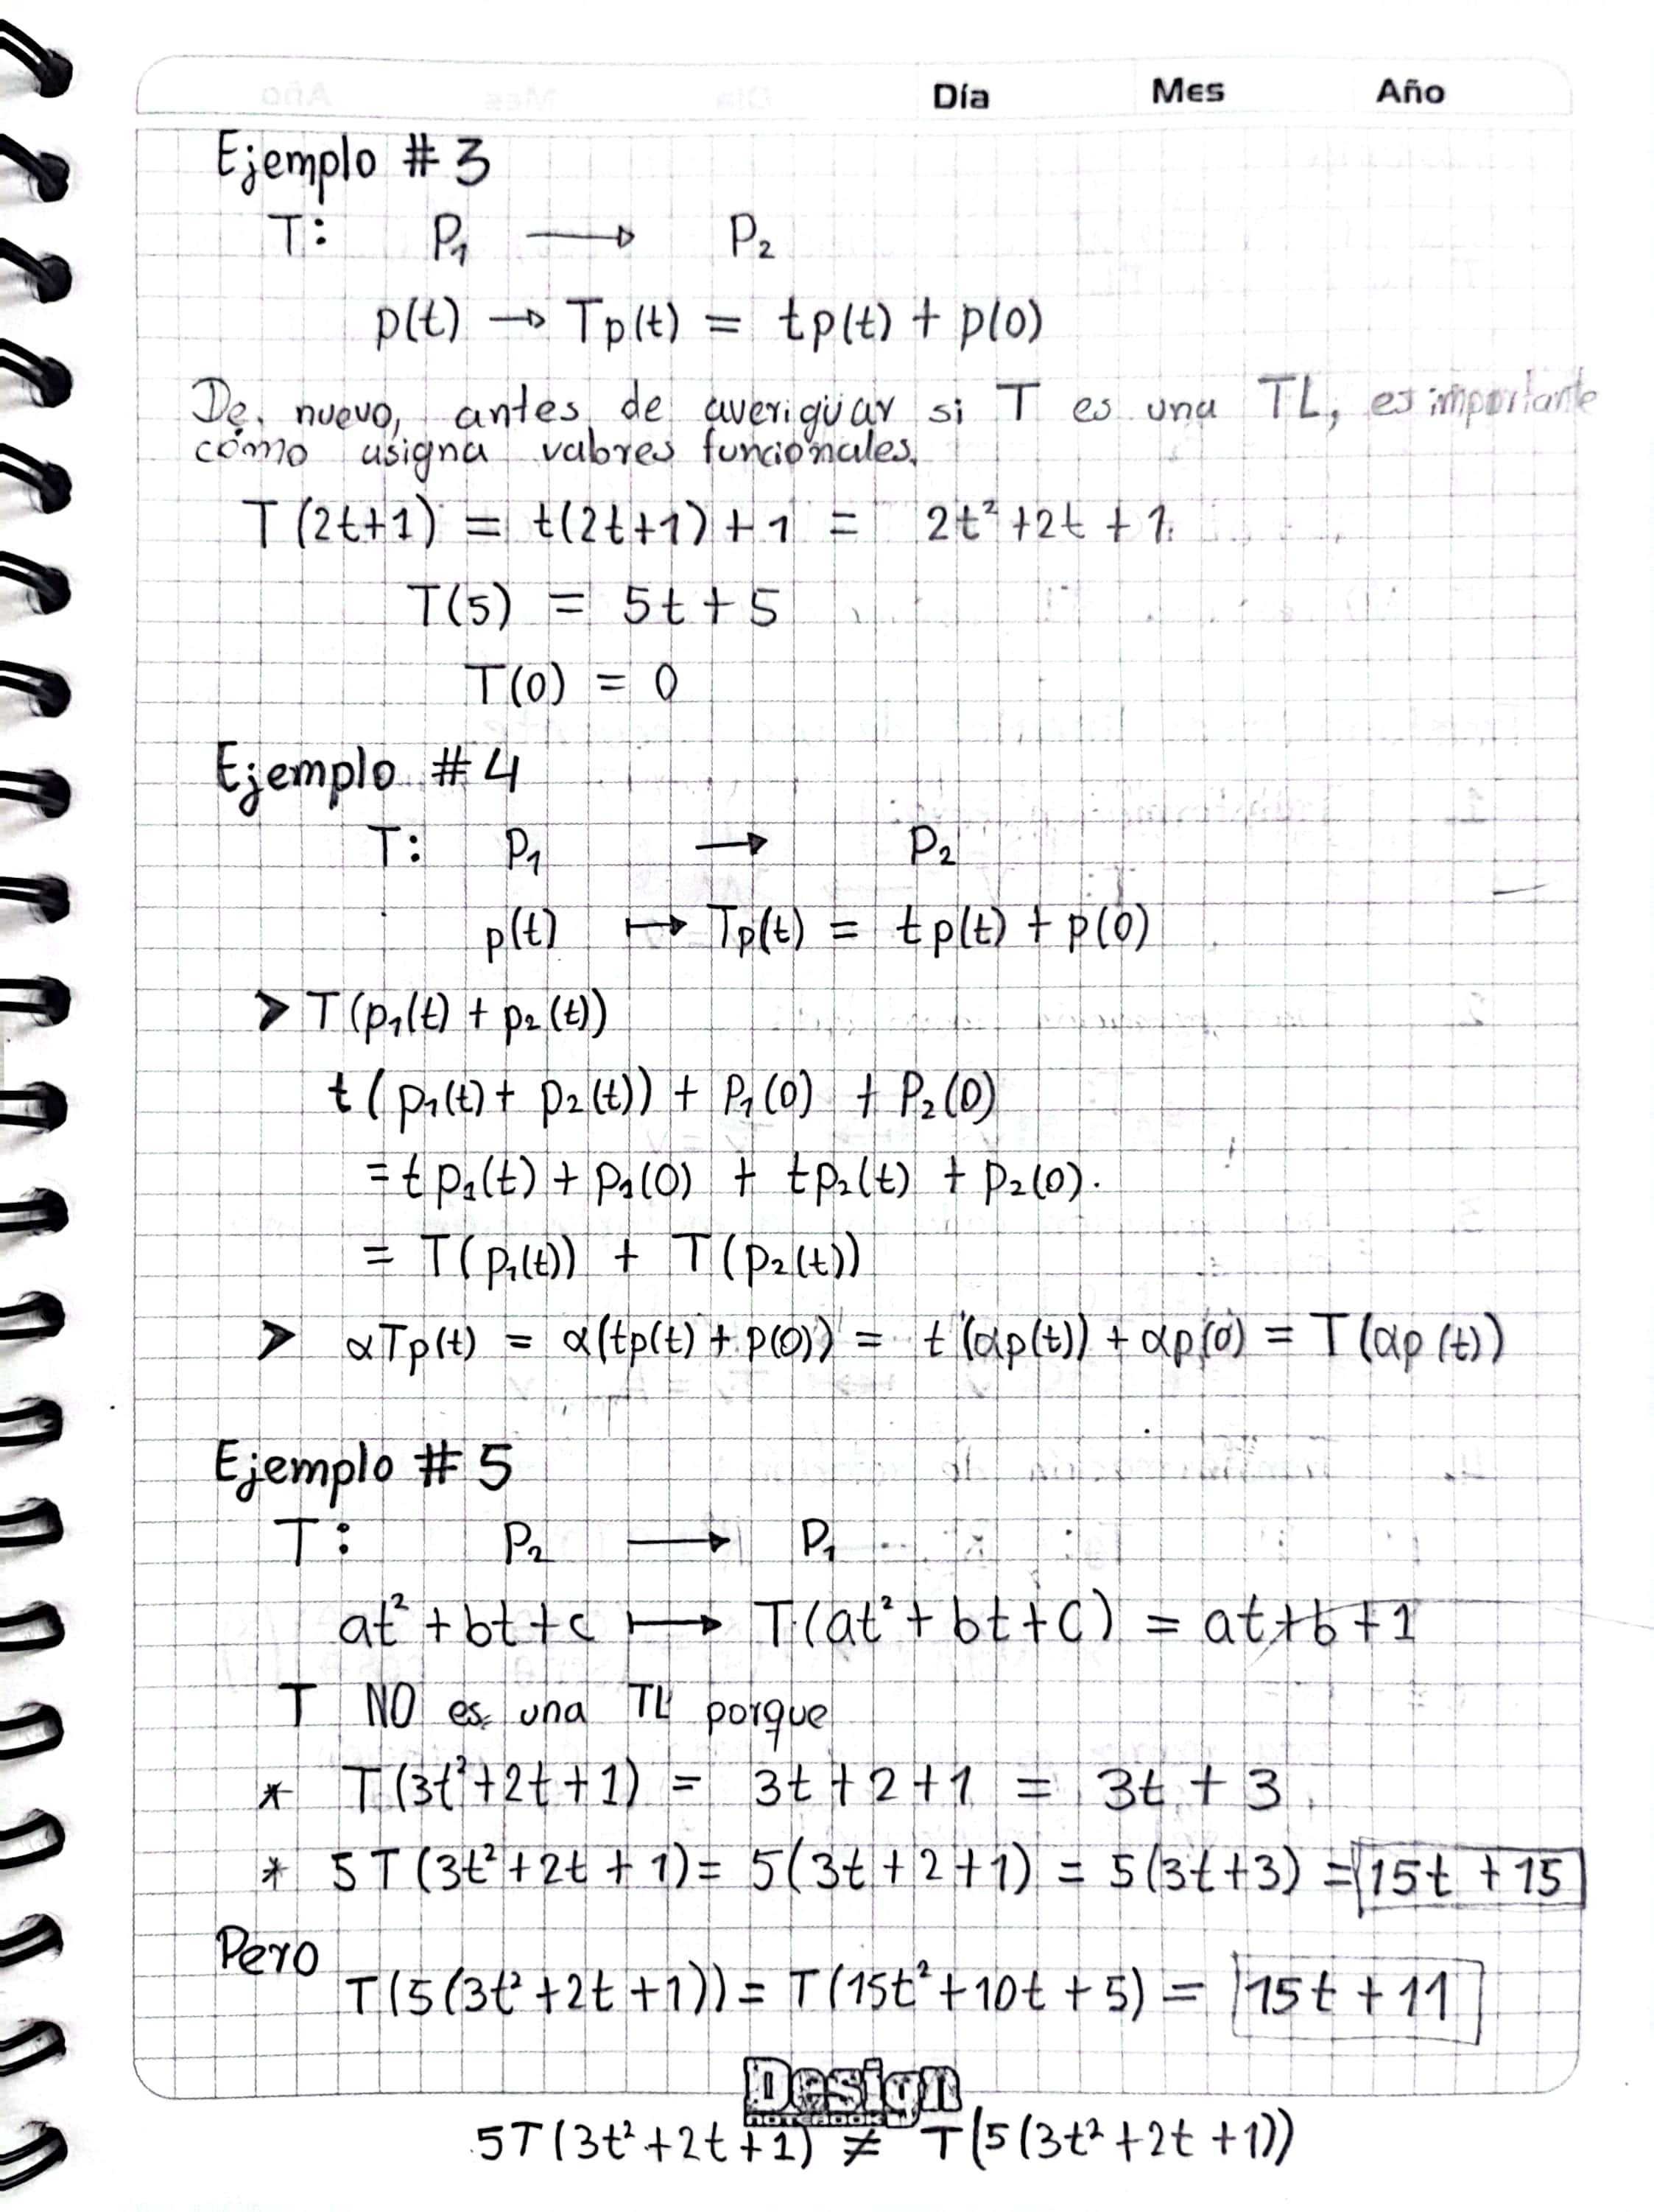 Día Mes Año
Ejemplo #3
T: P₁ → P₂
p(t) → Tp(t) = tp(t) + p(0)
De nuevo, antes de averiguar si T es una TL, es importante
cómo asigna valores funcionales.
T(2t+1) = t(2t+1)+1 = 2t²+2t+1.
T(5) = 5t+5
T(0) = 0
Ejemplo #4
T: P₁ → P₂
p(t) ↦ Tp(t) = tp(t) + p(0)
➤ T(p₁(t) + p₂(t))
t(p₁(t) + p₂(t)) + P₁(0) + P₂(0)
= tp₁(t) + p₁(0) + tp₂(t) + p₂(0).
= T(p₁(t)) + T(p₂(t))
➤ αTp(t) = α(tp(t) + p(0)) = t(αp(t)) + αp(0) = T(αp(t))
Ejemplo #5
T: P₂ → P₁
at² + bt + c ↦ T(at² + bt + c) = at+b+1
T NO es una TL porque
* T(3t²+2t+1) = 3t+2+1 = 3t+3
* 5T(3t²+2t+1) = 5(3t+2+1) = 5(3t+3) = 15t+15
Pero
T(5(3t²+2t+1)) = T(15t²+10t+5) = 15t+11
Design
NOTEBOOK
5T(3t²+2t+1) ≠ T(5(3t²+2t+1))